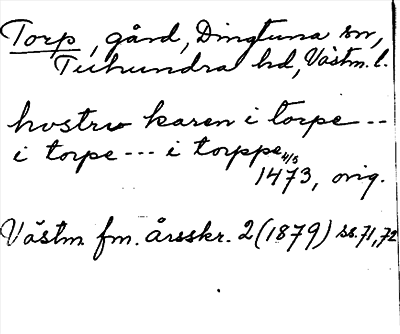 Torp, gård, Dingtuna sn,
Tuhundra hd, Västm. l.
hvstrv karen i torpe --
i torpe --- i torppe 4/5
1473, orig.
Västm fm. årsskr. 2 (1879) ss. 71, 72